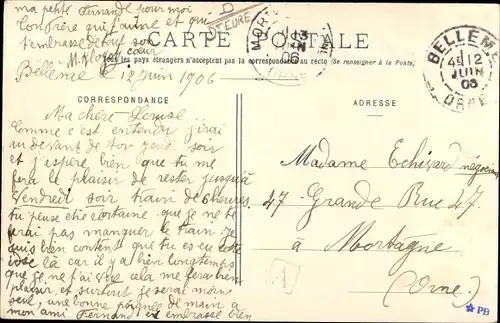 ma petite Fernand pour moi
Confrère qui t'aime et qui
t'embrasse de tout son
cœur
Bellême le 12 Juin 1906
D
DT EURE
CARTE POSTALE
MOR
ORNE
les pays étrangers n'acceptent pas la correspondance au recto (Se renseigner à la Poste)
BELLEME
4E 12
JUIN
06
ORNE
CORRESPONDANCE
ADRESSE
Ma chère Louise
Comme c'est entendu j'irai
au devant de toi jeudi soir
et j'espère bien que tu me
fera le plaisir de rester jusqu'à
Vendredi soir train de 6 heures
tu peus etre certaine que je ne te
ferai pas manquer le train. Je
suis bien contente que tu es eu cette
idée là car il y a bien longtemps
que je ne t'ai vue cela me ferai bien
plaisir et surtout je serai moins
seul, une bonne poignée de main a
mon ami Fernand et embrasse bien
Madame Echivard négociant
47 Grande Rue 47
à Mortagne
(Orne)
1
PB